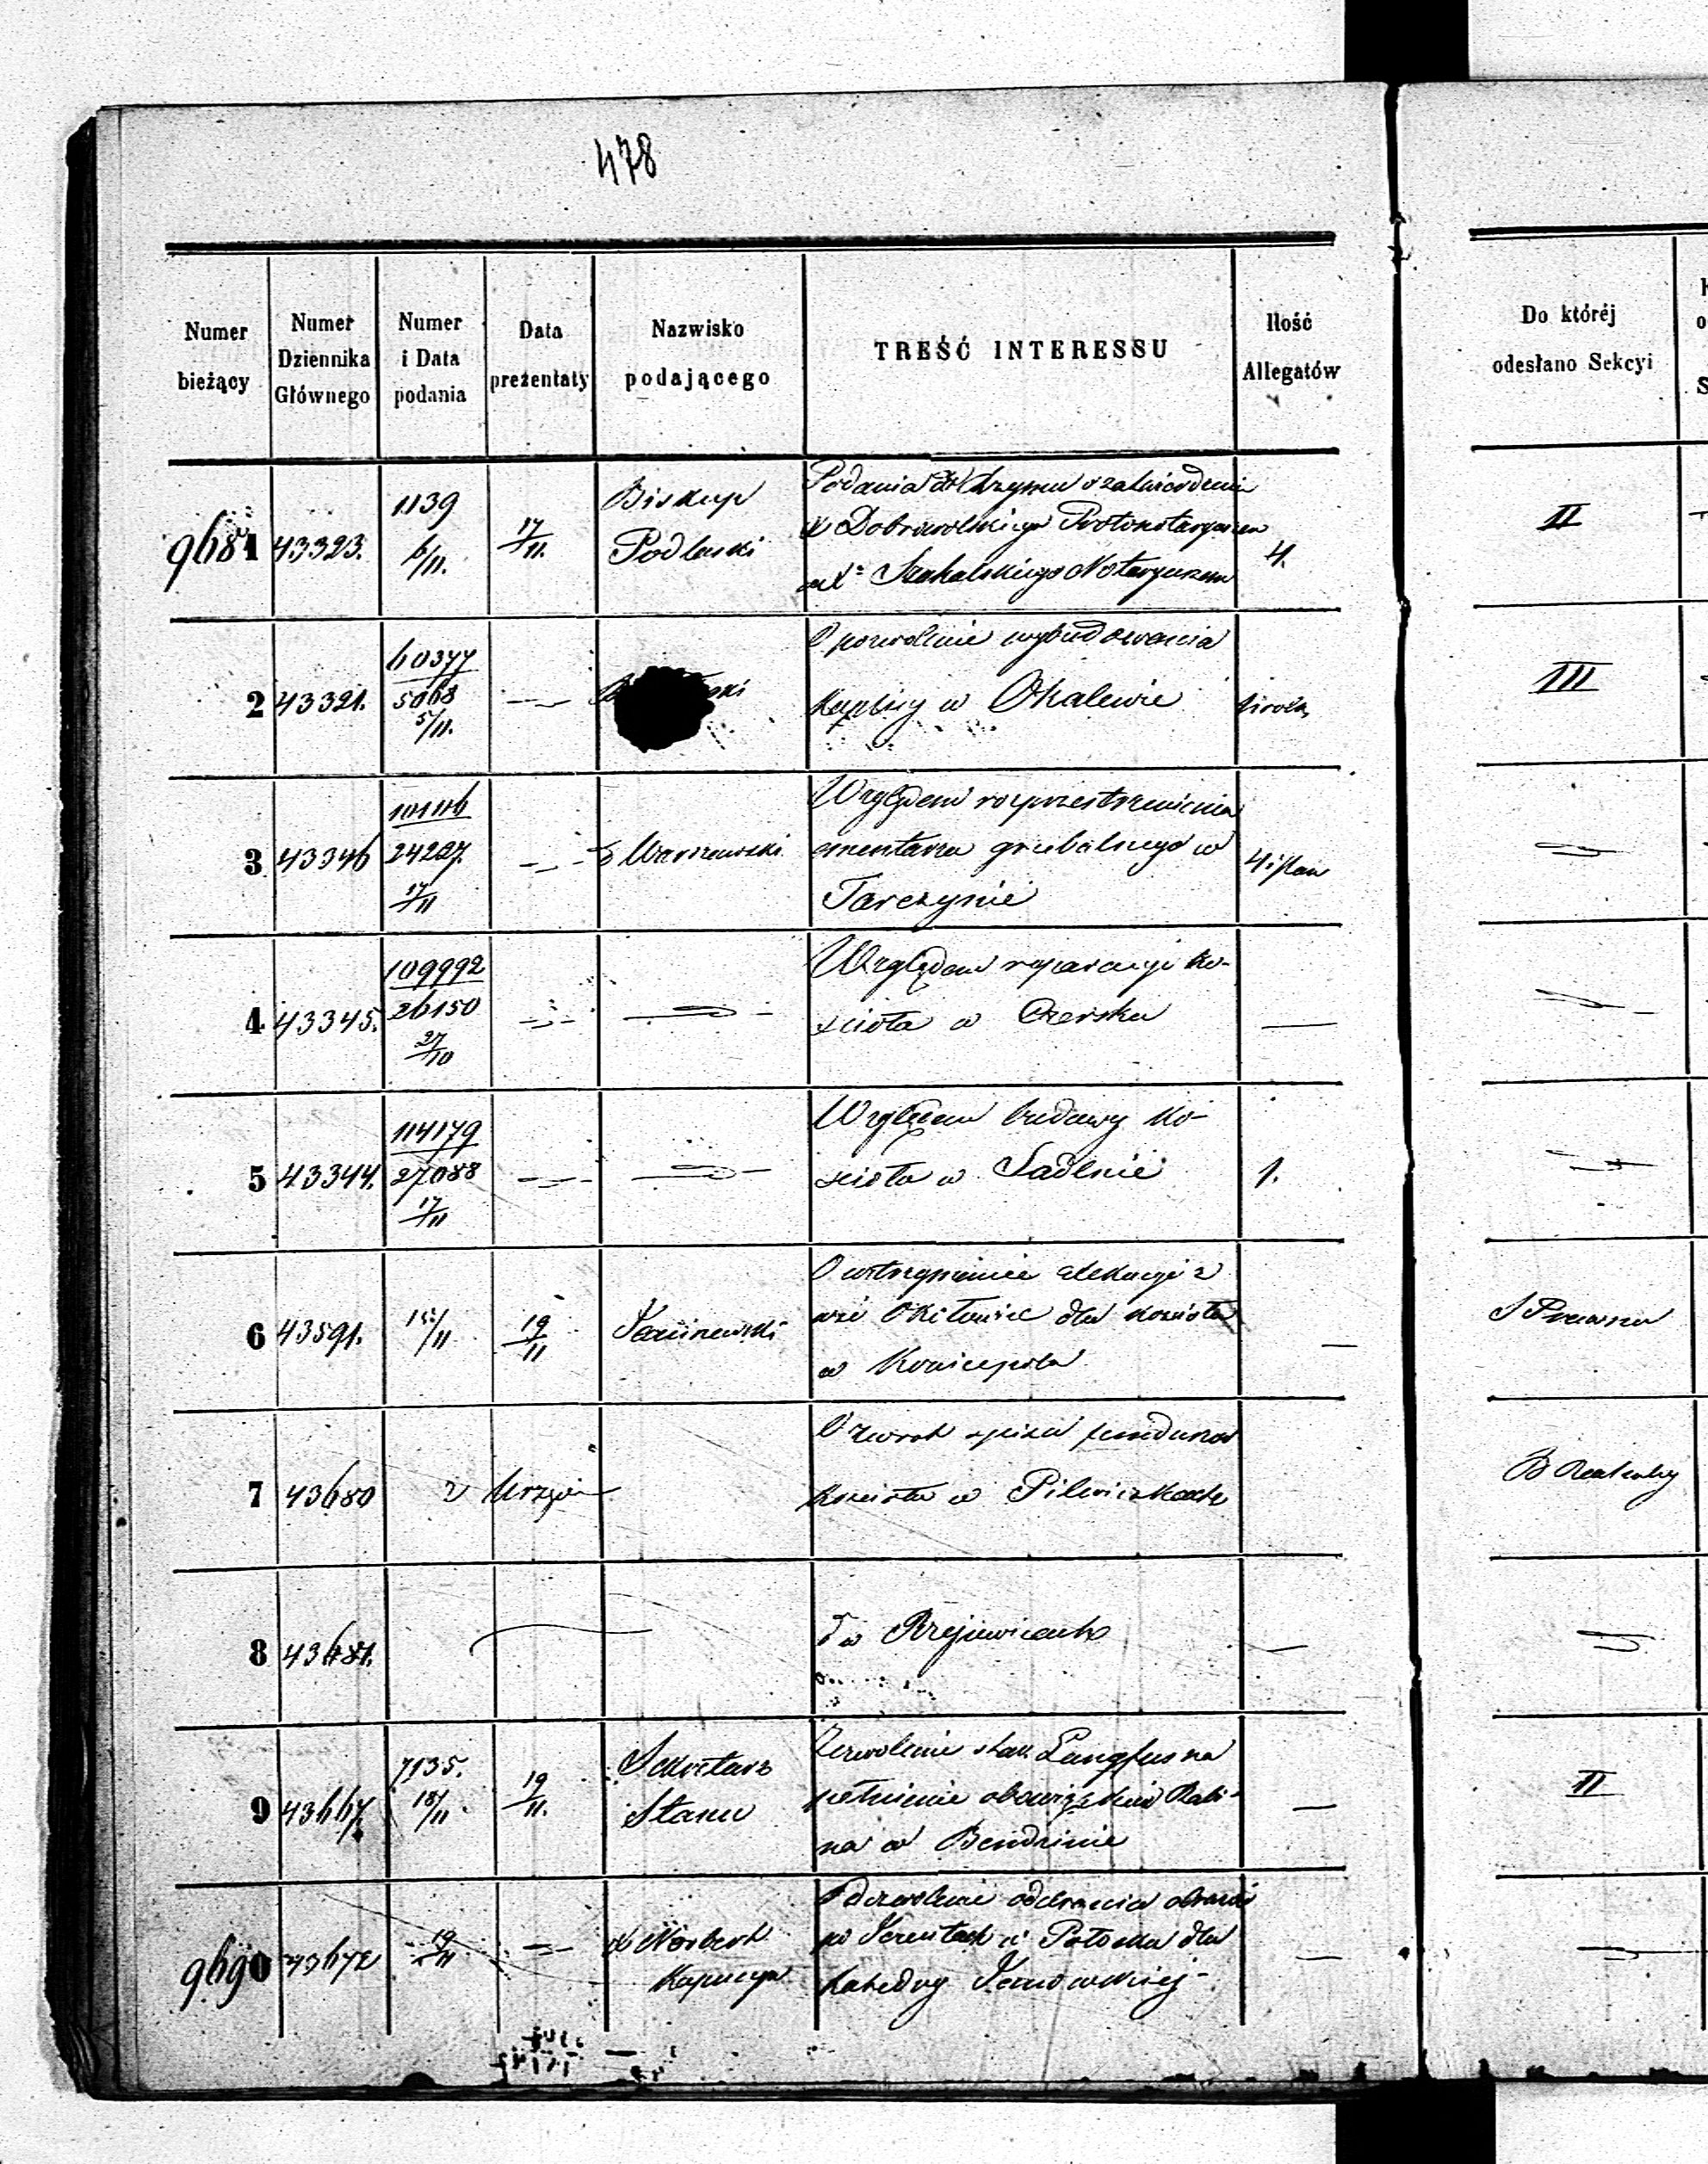 478
Numer bieżący
Numer Dziennika Głównego
Numer i Data podania
Data prezentaty
Nazwisko podającego
TREŚĆ INTERESSU
Ilość Allegatów
Do któréj odesłano Sekcyi
9681 43323. 1139 6/11. 17/11. Biskup Podlaski
Podania do Rzymu o zatwierdzenie
X Dobrowolskiego Protonotaryuszem
a X Szakalskiego Notaryuszem
4.
II
2 43321. 60377 5068 5/11.
O pozwolenie wybudowania
kaplicy w Okalewie
III
3 43346 24227 17/11 Warszawski
Względem rozprzestrzenienia
cmentarza grzebalnego w
Tarczynie
4 i plan
4 43345. 109992 26150 27/10
Względem reparacyi ko-
ścioła w Czersku
5 43344. 114179 27088 17/11
Względem budowy ko-
ścioła w Sadlnie
1.
6 43591. 15/11 19/11
O wstrzymanie
wsi dla kościoła
w Koniecpolu
S Prawna
7 43680 z Urzędu
O zwrot spisu funduszów
kościoła w Pilwiszkach
8 43681.
w
9 43667. 7135. 18/11 19/11. Sekretarz Stanu
Zezwolenie Langfus na
pełnienie obowiązków Rabi-
na w Bendzinie
II
9690 43672 19/11 X Norbert Kapucyn
odebrania obrazów
dla
katedry Janowskiej